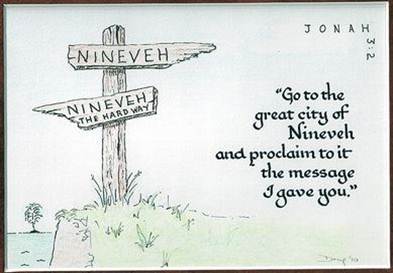 NINEVEH
NINEVEH
THE HARD WAY
JONAH
3:2
“Go to the
great city of
Nineveh
and proclaim to it
the message
I gave you.”